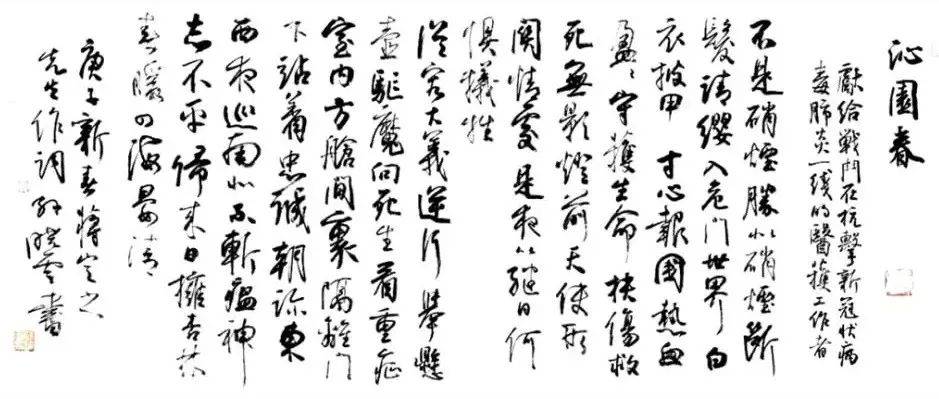 沁園春
獻給戰鬥在抗擊新冠狀病
毒肺炎一线的醫護工作者
不是硝煙勝似硝煙斷
髮請纓入危門世界白
衣披甲寸心報國熱血
盈盈守護生命扶傷救
死無影燈前天使形
關情處是夜以繼日何
懼犧牲
從容大義逆行舉懸
壺驅魔向死生看重症
室内方艙間裏隔離門
下站着忠誠朝診東
西夜巡南北不斬瘟神
志不平歸來日擁杏林
春暖四海晏清
庚子新春蔣定之
先生作詞 孫曉雲書